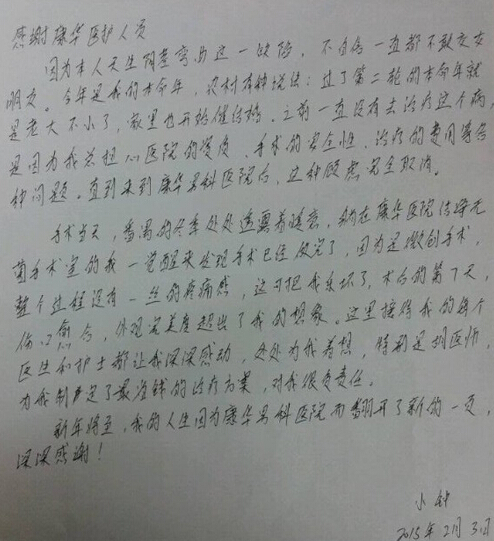 感谢康华医护人员
因为本人天生阴茎弯曲这一缺陷，不自信一直都不敢交女
朋友。今年是我的本命年，农村有种说法：过了第二轮的本命年就
是老大不小了，家里也开始催结婚。之前一直没有去治疗这个病，
是因为我总担心医院的资质、手术的安全性、治疗的费用等各
种问题。直到来到康华男科医院后，这种顾虑完全取消。
手术当天，番禺的冬季处处透露着暖意，躺在康华医院洁净无
菌手术室的我一觉醒来发现手术已经做完了，因为是微创手术，
整个过程没有一丝的疼痛感，这可把我乐坏了，术后的第7天，
伤口愈合，外观完美度超出了我的想象。这里接待我的每个
医生和护士都让我深深感动，处处为我着想，特别是刘医师，
为我制定了最准确的治疗方案，对我很负责任。
新年将至，我的人生因为康华男科医院而翻开了新的一页，
深深感谢！
小钟
2015年2月3日